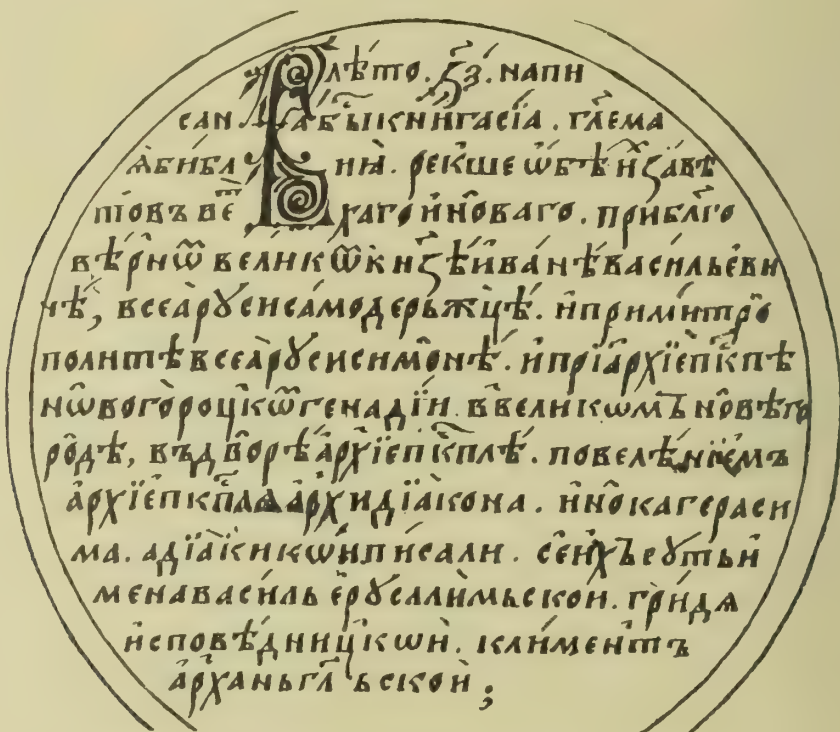 В лѣто . ҂з҃з . напи
сана бы̑ кни́га сїа̀ . гл҃ема
ѧ̀ библїа̀ . ре́кше ѡ҆бѣи́х завѣ
товъ ве́тхаго и҆ но́ваго . при бл҃го
вѣ́рнѡⷨ великѡⷨ кн҃зѣ и҆ва́нѣ васи́льеви
чѣ, всеа̀ рꙋсїи само́держцѣ . и҆ при ми́тро
поли́тѣ всеа̀ рꙋсїи си́монѣ . и҆ при а҆рхїеп҃кпѣ
нѡвогоро́цкѡⷨ генадїи . в вели́кѡмъ но́вѣго
ро́дѣ, въ дво́рѣ а҆рхїеп҃кплѣ . повелѣ́нїемъ
а҆рхїеп҃кпля а҆рхидїа̀кона . и҆но́ка гераси
ма . а дїа̀ки кѡи́ писали . сеи́х сꙋть и
мена васи́ль е҆рꙋсали́мьскои . гри́дѧ
и҆сповѣ́дницкѡи . кли́ментъ
а҆рха́ньгл҃ьскои ;